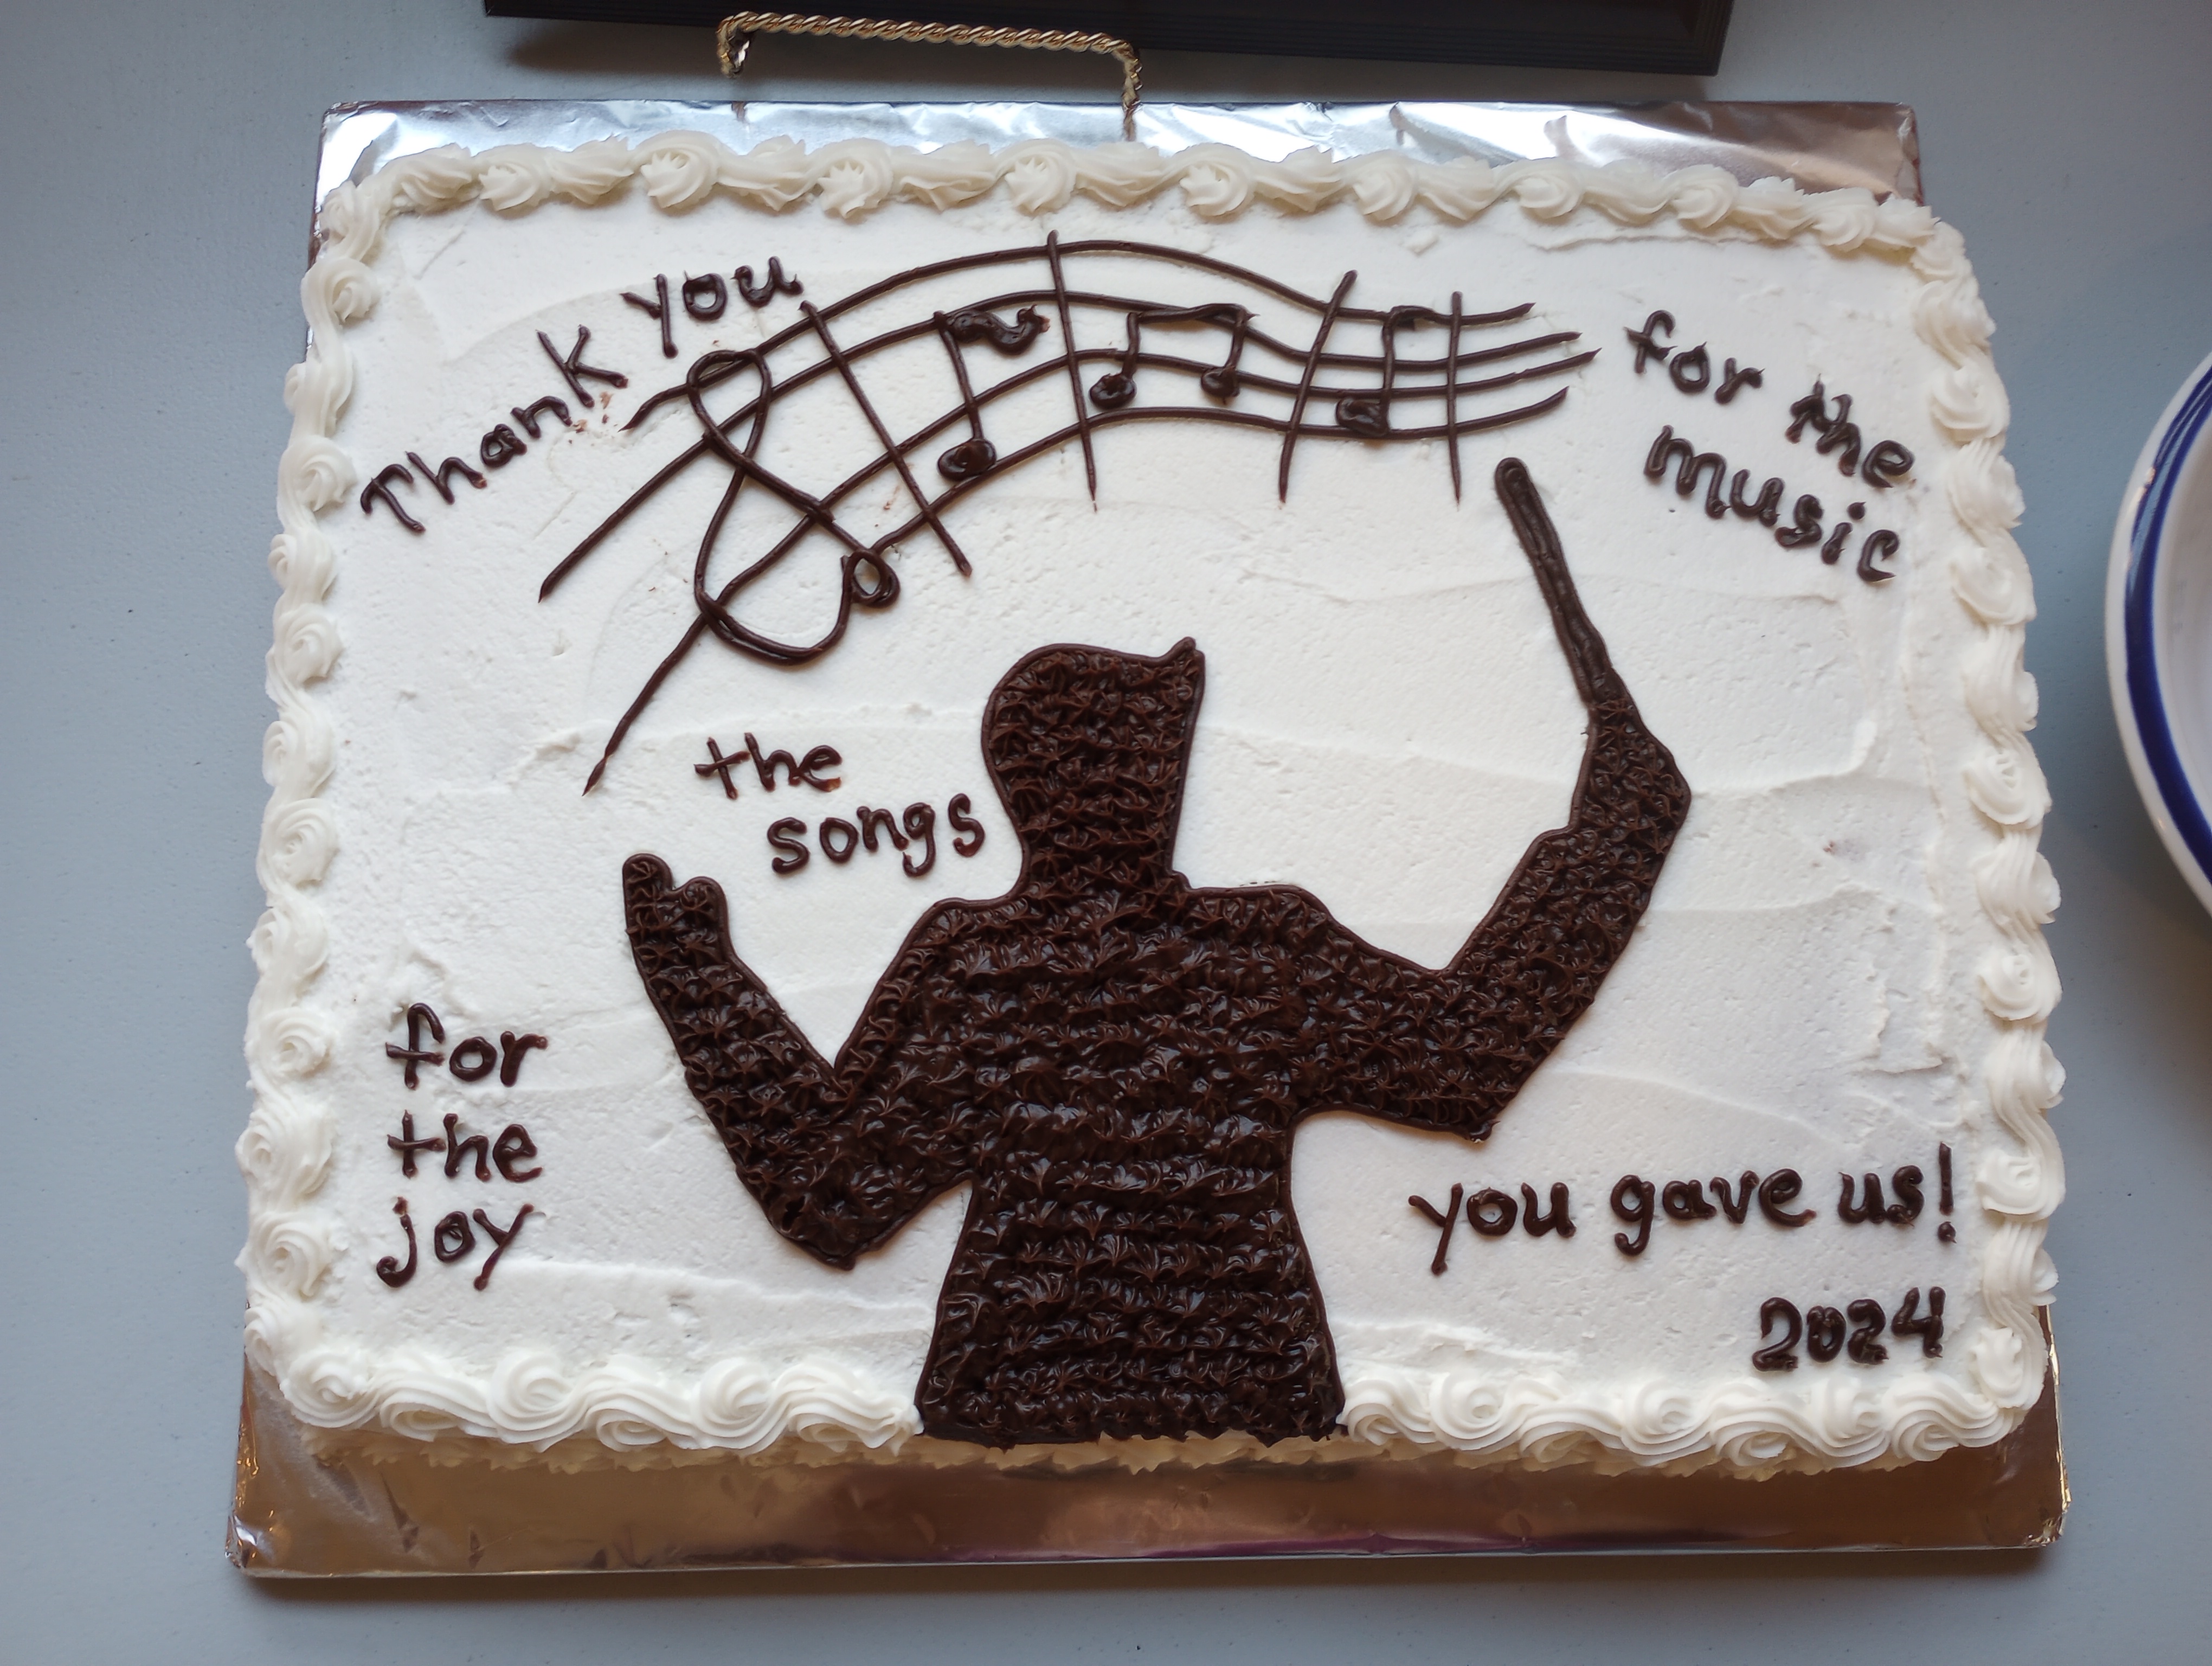 Thank you
for the
music
the
songs
for
the
joy
you gave us!
2024